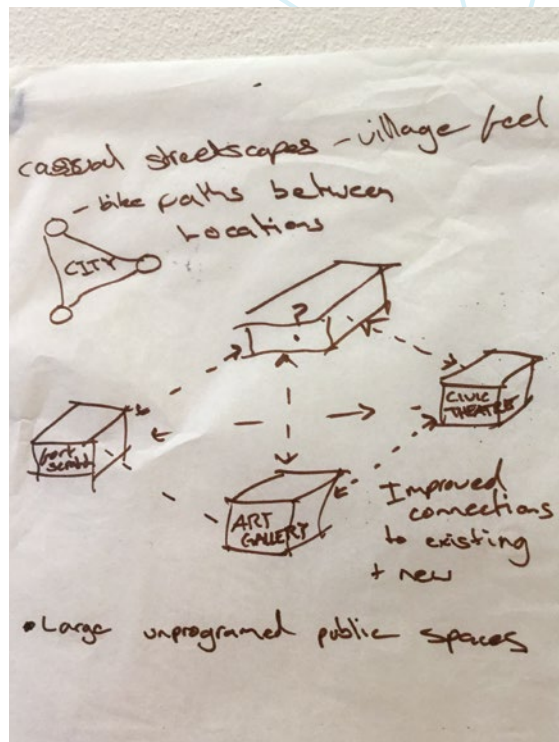 casual streetscapes - village feel
- bike paths between
Locations
CITY
?
CIVIC
THEATRE
fort
scratchley
ART
GALLERY
Improved
connections
to existing
+ new
• Large unprogramed public spaces